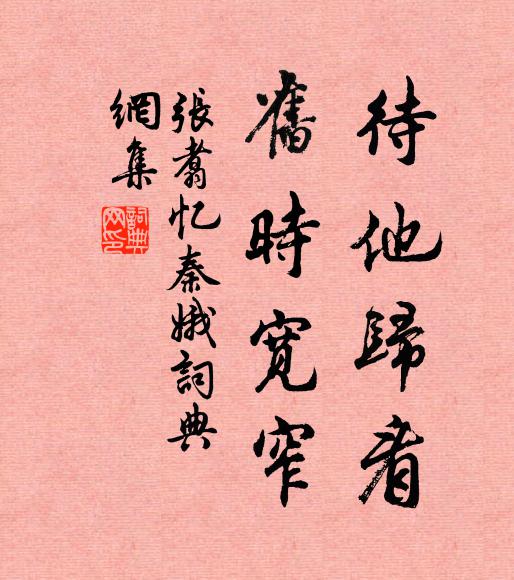 待他歸看
舊時寬窄
張翥忆秦娥詞典
網集
詞典
网印